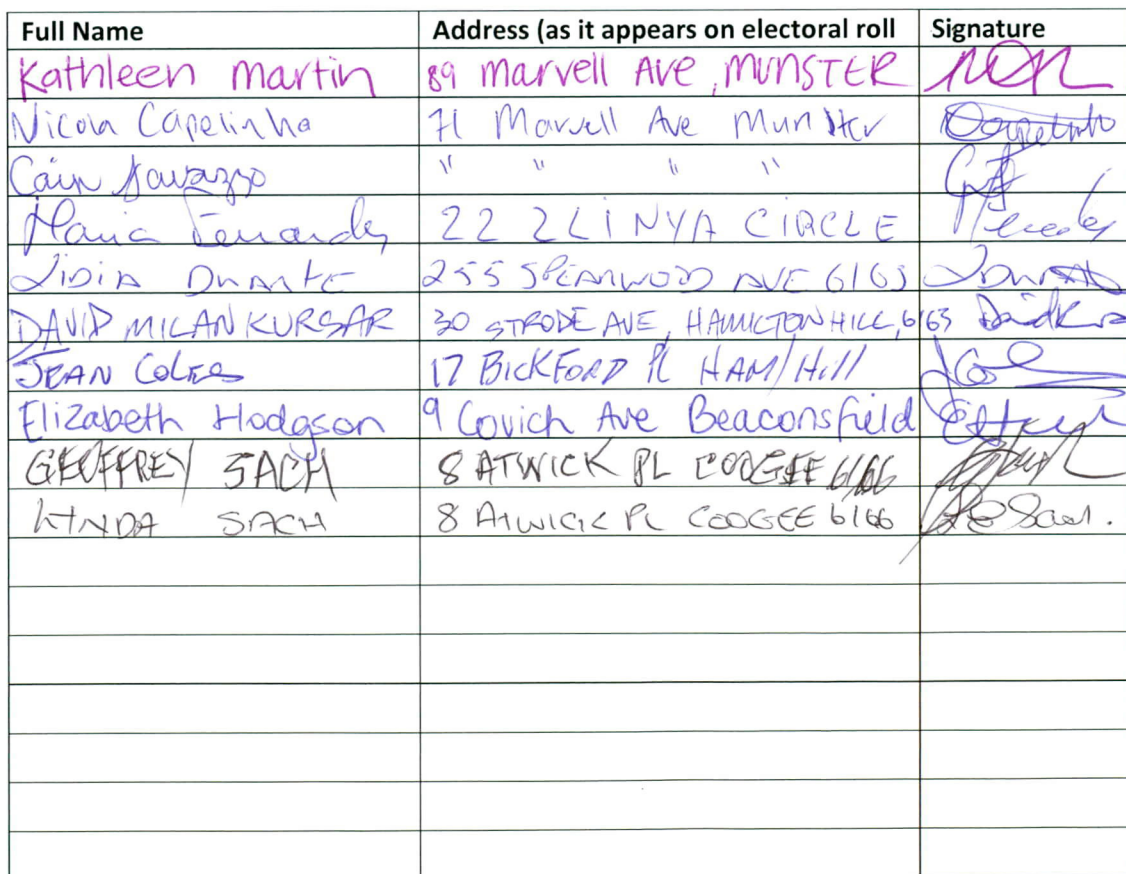 Full Name Address (as it appears on electoral roll Signature
Kathleen martin 89 Marvell Ave, MUNSTER
Nicola Capelinha 71 Marvell Ave Munster
Cain " " " "
Maria Fernandes 22 CIRCLE
Lidia Duarte 255 SPEARWOOD AVE 6163
DAVID MILAN KURSAR 30 STRODE AVE, HAMILTON HILL, 6163
JEAN COLES 17 BICKFORD PL HAM/Hill
Elizabeth Hodgson 9 Covich Ave Beaconsfield
GEOFFREY SACH 8 ATWICK PL COOGEE 6166
LYNDA SACH 8 ATWICK PL COOGEE 6166